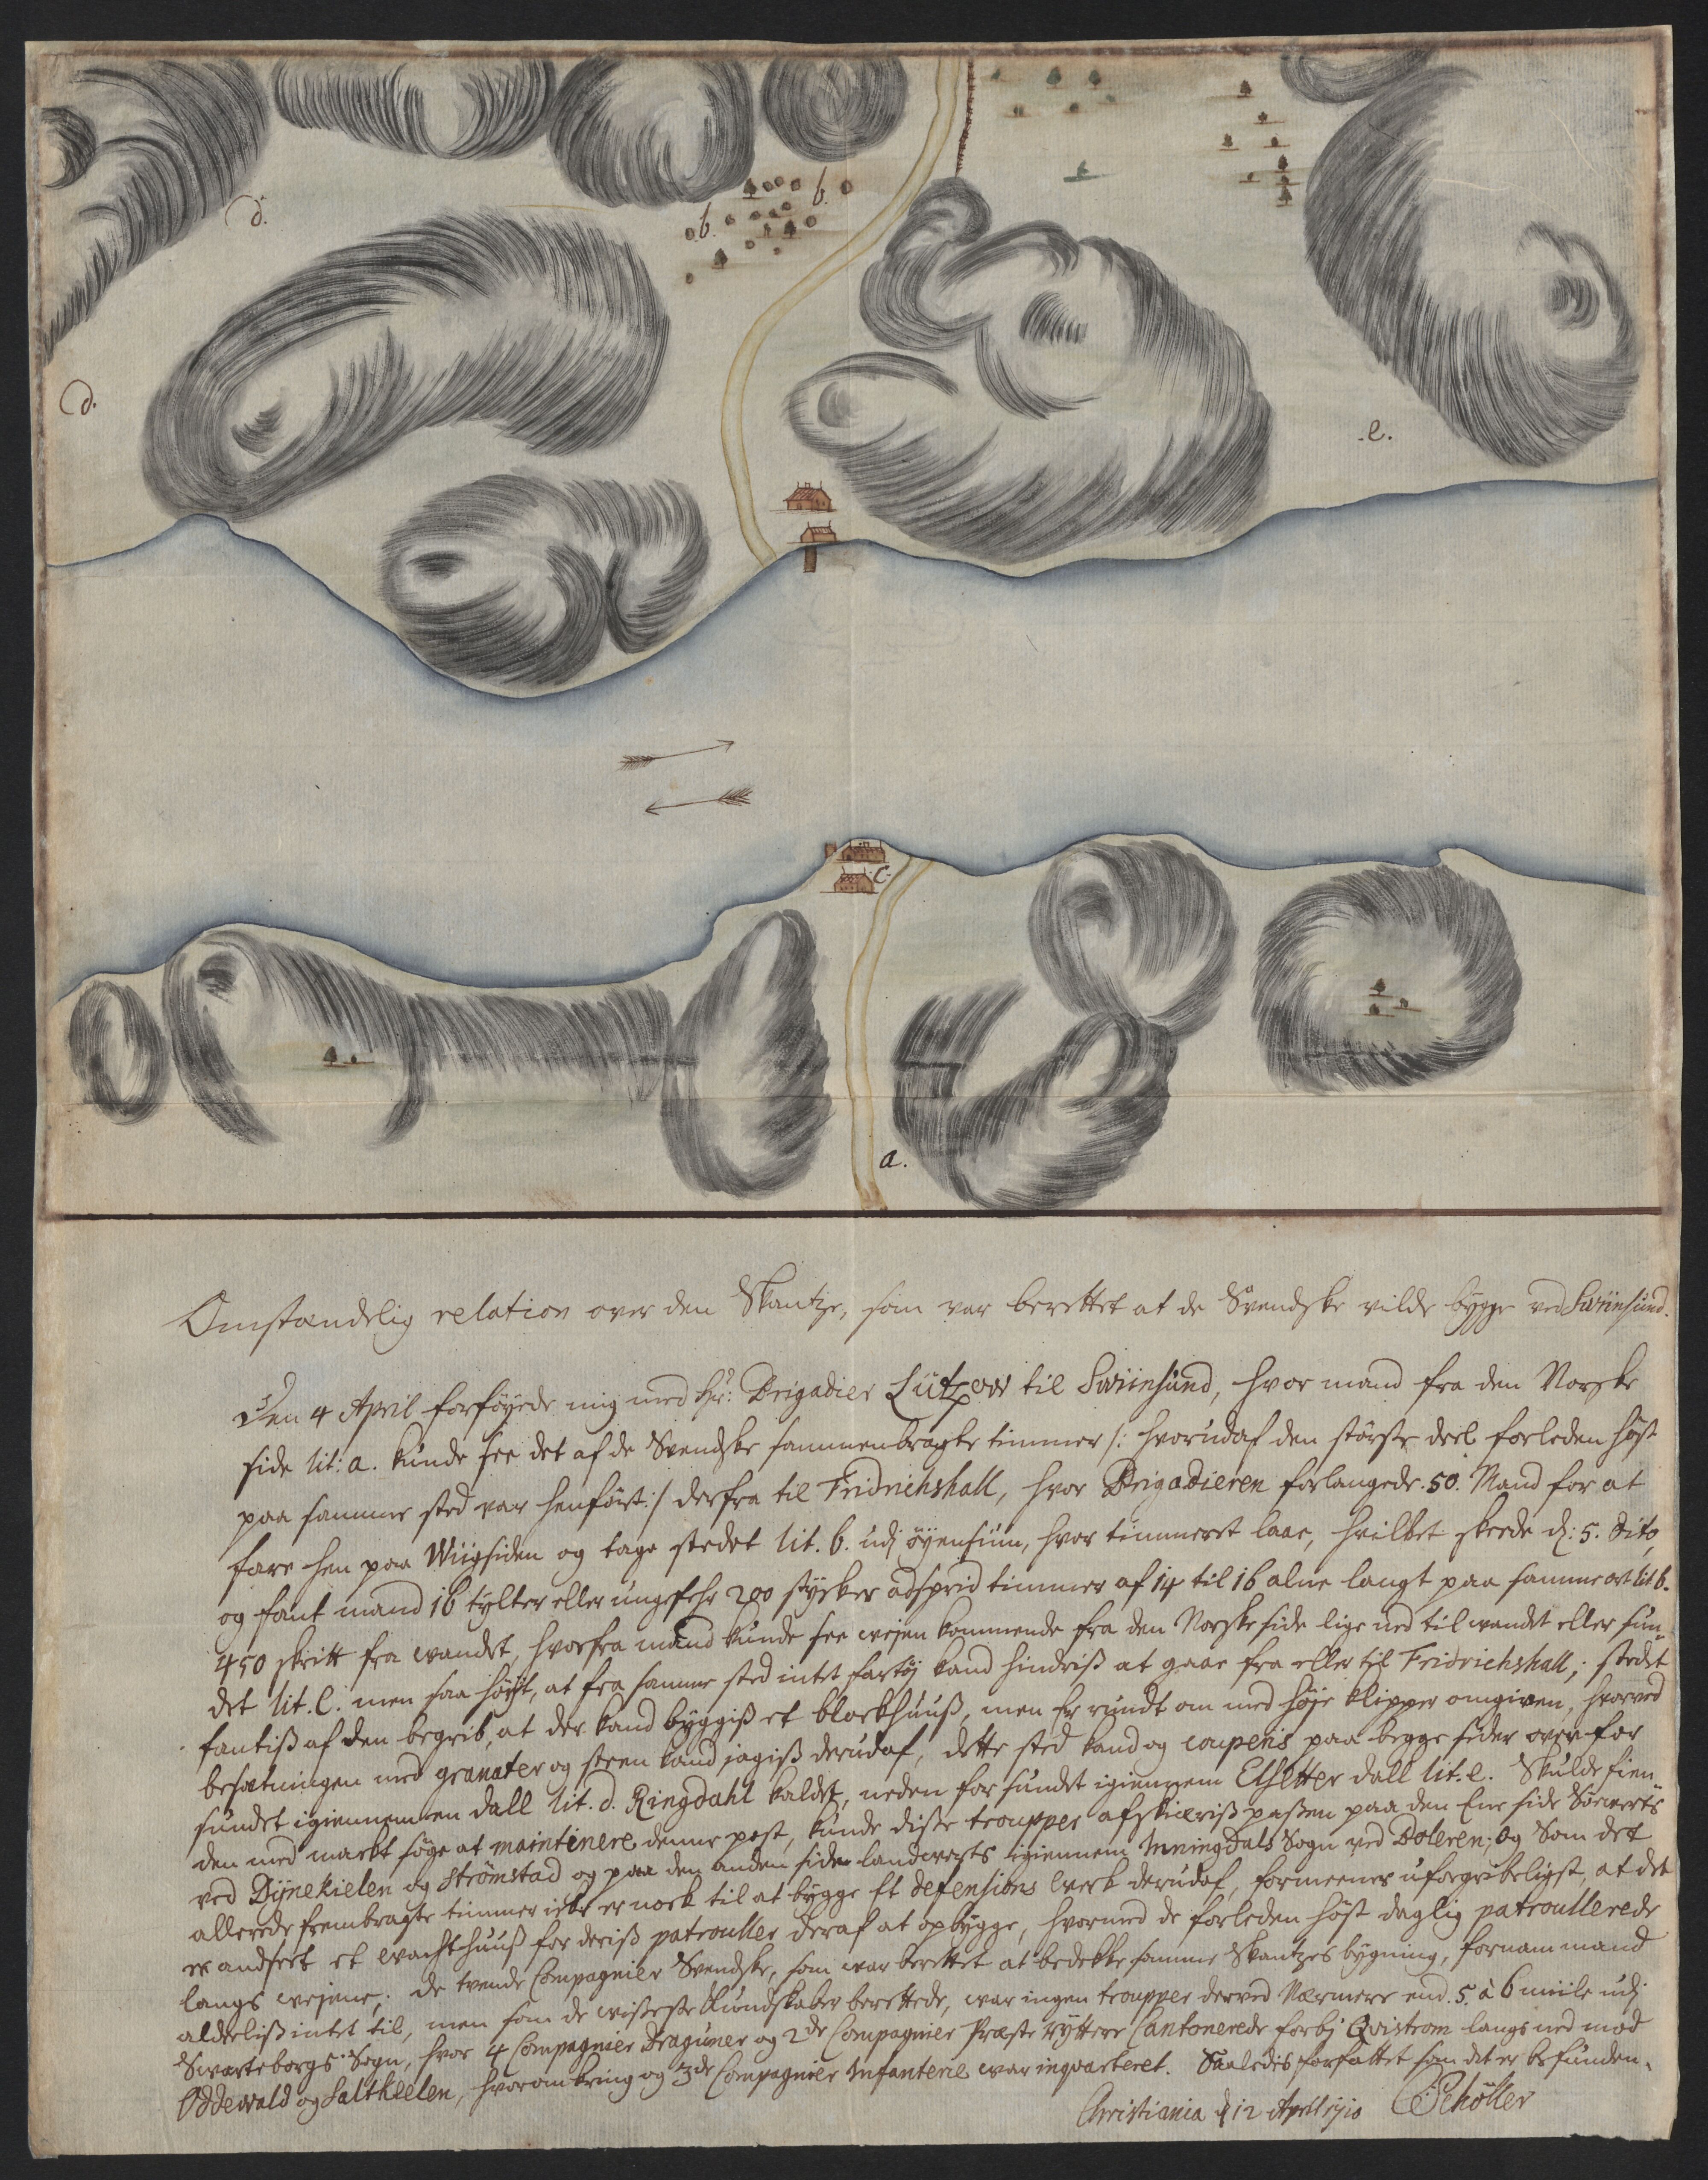 d.
b.
b.
d.
e.
c.
a.
Omstændelig relation over den Skantze, som var berettet at de Svendske vilde bygge ved Swiinsund.
Den 4 April forföyede mig med Hr: Brigadier Lützow til Swiinsund, hvor mand fra den Norske
side lit: a. kunde see det af de Svendske sammenbragte timmer /: hvorudaf den störste deel forleden höst
paa samme sted var henfört :/ derfra til Fridrichshall, hvor Brigadieren forlangede 50. Mand for at
fare hen paa Wiigsiden og tage stedet lit. b. udj öyensiun, hvor timmeret laae, hvilket skeede d: 5. dito,
og fant mand 16 tylter eller ungefehr 200 stycker adsprid timmer af 14 til 16 alne langt paa samme ort lit b.
450 skritt fra wandet, hvorfra mand kunde see weyen kommende fra den Norske side lige ned til wandet eller sun-
det lit. C: men saa höyt, at fra samme sted intet fartöj kand hindriss at gaae fra eller til Fridrichshall; stedet
fantiss af den begrib, at der kand byggiss et blockhuuss, men er rundt om med höje klipper omgiven, hvorved
besætningen med granater og steen kand jagiss derudaf, dette sted kand og couperis paa begge sider over for
sundet igiennem en dall lit. d. Ringdahl kaldet, neden for sundet igiennem Elsetter dall lit. e. Skulde fien-
den med magt söge at maintinere denne post, kunde disse troupper afskiæriss passen paa den Ene side Söewerts
ved Dynekielen og Strömstad og paa den anden side landwerts igiennem Inningdals Sogn ved Boleren; og som det
allerede frembragte timmer icke er nock til at bygge et defensions werk derudaf, formeener uforgribeligst, at det
er andseet et wachthuuss for deriss patrouller deraf at opbygge, hvormed de forleden höst daglig patroullerede
langs weyene; de tvende Compagnier Svendske, som war berettet at bedekke samme Skantzes bygning, fornam mand
alderliss intet til, men som de wisseste Kundskaber berettede, war ingen troupper derved Nærmere end 5. à 6 miile udj
Swarteborgs Sogn, hvor 4 Compagnier Draguner og 2de Compagnier Præste Ryttere Cantonerede forbj Qvistrom langs ned mod
Oddewald og Saltkeelen, hvoromkring og 3de Compagnier Infanterie war inqvarteret. Saaledis forfattet som det er befunden.
Christiania d 12 April 1710 CSchöller